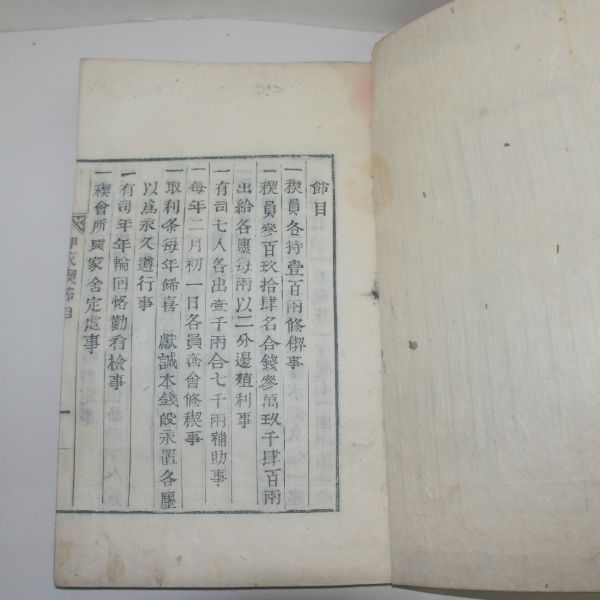 節目
一稧員各持壹百兩修稧事
一稧員參百玖拾肆名合錢參萬玖千肆百兩
出給各廛每兩以二分邊殖利事
一有司七人各出壹千兩合七千兩補助事
一每年二月初一日各員齊會修稧事
一取利条每年餙喜 獻誠本錢段永置各廛
以爲永久遵行事
一有司年年輪回恪勤看檢事
一稧會所與家舍定處事
甲戌稧節目
一